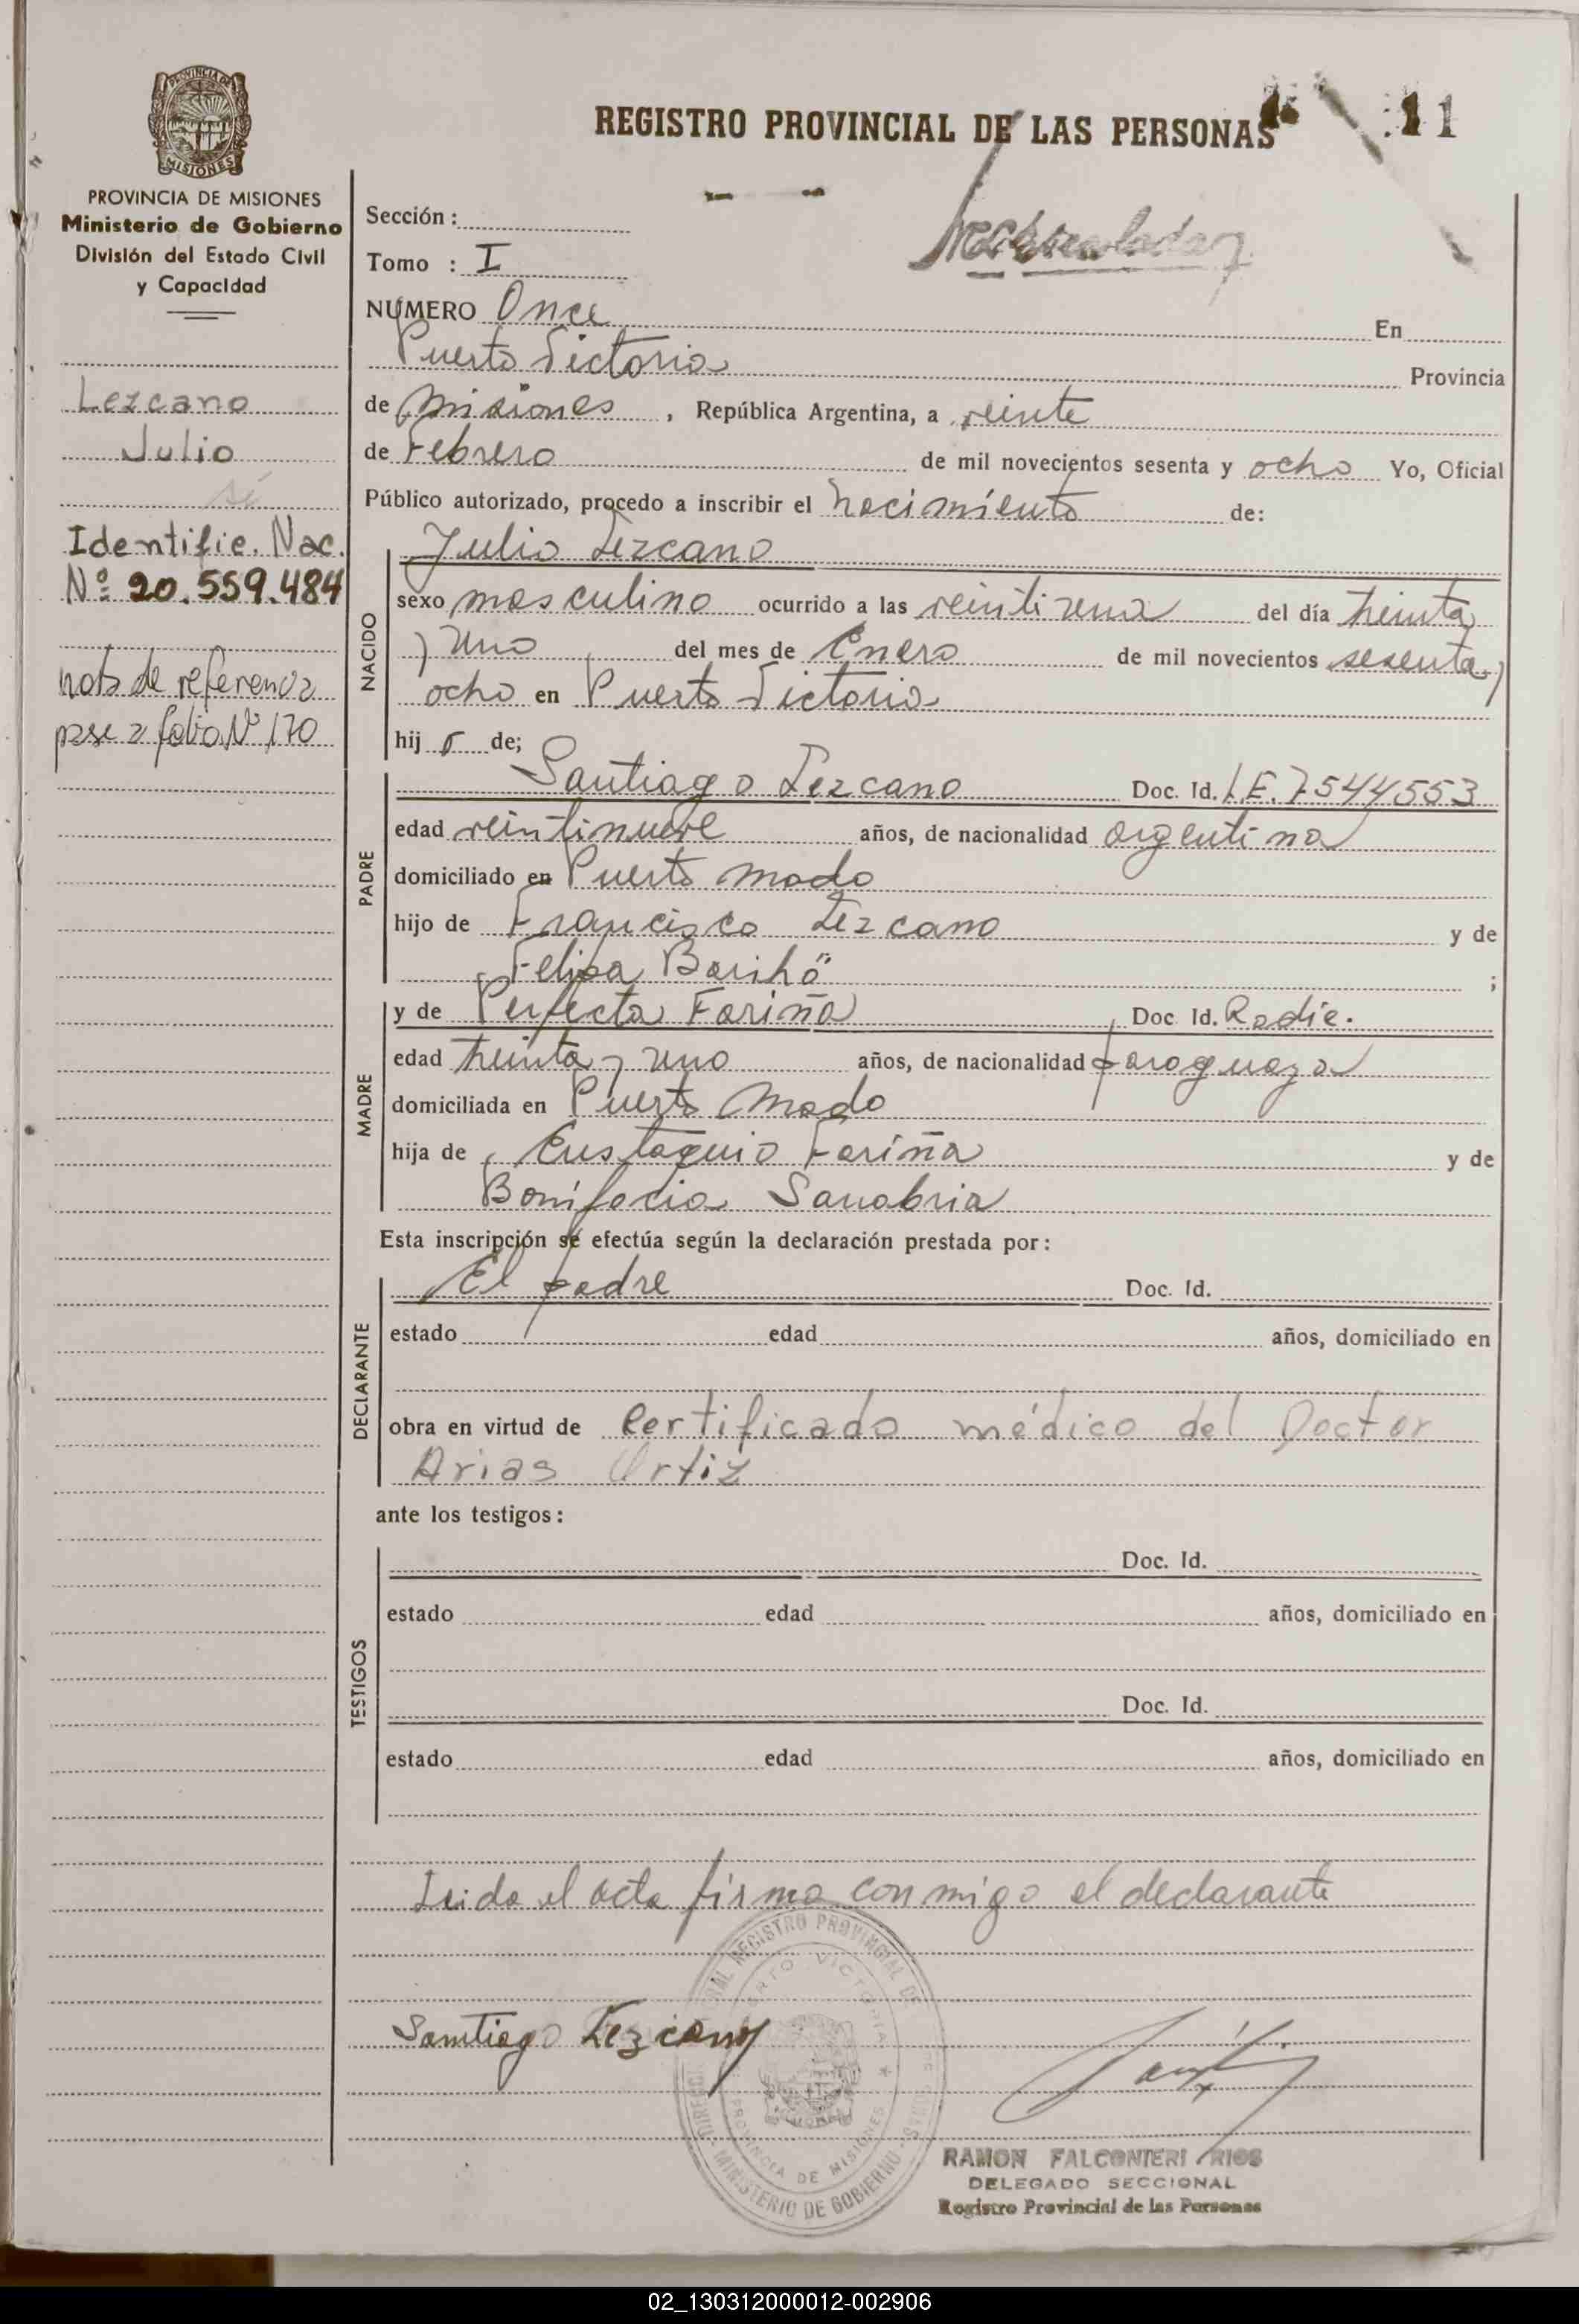 REGISTRO PROVINCIAL DE LAS PERSONAS
11
PROVINCIA DE MISIONES
PROVINCIA DE MISIONES
Ministerio de Gobierno
División del Estado Civil
y Capacidad
Lezcano
Julio
Identific. Nac.
Nº 20.559.484
nota de referencia
pase a folio Nº 170
Sección:
Tomo : I
NÚMERO Once En
Puerto Victoria Provincia
de Misiones, República Argentina, a veinte
de Febrero de mil novecientos sesenta y ocho Yo, Oficial
Público autorizado, procedo a inscribir el nacimiento de:
NACIDO
Julio Lezcano
sexo masculino ocurrido a las del día treinta
y uno del mes de Enero de mil novecientos sesenta y
ocho en Puerto Victoria
hijo de;
PADRE
Santiago Lezcano Doc. Id. L.E. 7544553
edad veintinueve años, de nacionalidad argentina
domiciliado en Puerto Mado
hijo de Francisco Lezcano y de
Felipa ;
MADRE
y de Perfecta Fariña Doc. Id. Radic.
edad treinta y uno años, de nacionalidad paraguaya
domiciliada en Puerto Mado
hija de Eustaquio Fariña y de
Bonifacia Sanabria
Esta inscripción se efectúa según la declaración prestada por:
DECLARANTE
El padre Doc. Id.
estado edad años, domiciliado en
obra en virtud de Certificado médico del Doctor
Arias Ortiz
ante los testigos:
TESTIGOS
Doc. Id.
estado edad años, domiciliado en
Doc. Id.
estado edad años, domiciliado en
Leida el acta firma conmigo el declarante
REGISTRO PROVINCIAL DE
PUERTO VICTORIA
PROVINCIA DE MISIONES
MINISTERIO DE GOBIERNO
Santiago Lezcano
RAMON FALCONIERI RIOS
DELEGADO SECCIONAL
Registro Provincial de las Personas
02_130312000012-002906